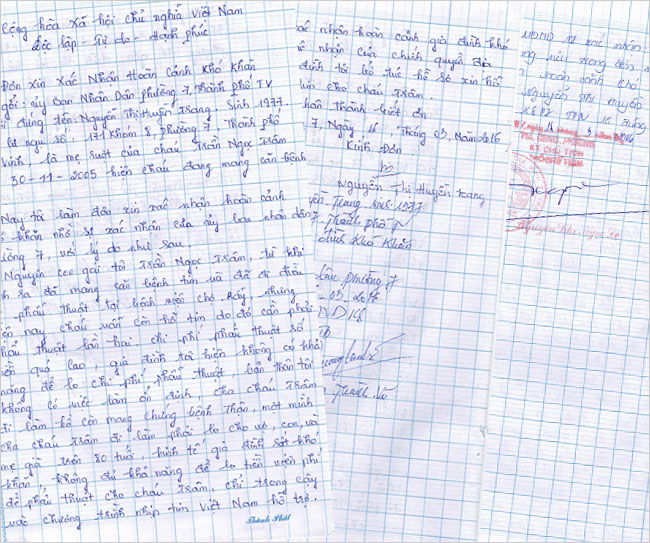 Cộng hòa Xã hội chủ nghĩa Việt Nam
Độc lập - Tự do - Hạnh phúc
Đơn Xin Xác Nhận Hoàn Cảnh Khó Khăn
gởi: ủy Ban Nhân Dân phường 7, Thành phố TV
tên: Nguyễn Thị Huyền Trang. Sinh 1977.
ngụ số: 171 Khóm 8, phường 7. Thành phố
Vinh, là mẹ ruột của cháu Trần Ngọc Trâm
30-11-2005 hiện cháu đang mang căn bệnh
Nay tôi làm đơn xin xác nhận hoàn cảnh
khăn nhờ sự xác nhận của ủy ban nhân dân
7, với lý do như sau
Nguyên con gái tôi Trần Ngọc Trâm, từ khi
sa đã mang căn bệnh tim và đã đi điều
phẩu thuật tại bệnh viện chợ Rẫy, nhưng
nay cháu vẫn còn hở tim do đó cần phải
phẩu thuật lần hai. chi phí phẩu thuật số
tiền quá cao, gia đình tôi hiện không có khả
năng để lo chi phí phẩu thuật, bản thân tôi
không có việc làm ổn định, cha cháu Trâm
đi làm hồ còn mang chứng bệnh Thận, một mình
cha cháu Trâm đi làm phải lo cho vợ, con, và
mẹ già trên 80 tuổi, kinh tế gia đình rất khó
khăn, không đủ khả năng để lo tiền viện phí
để phẩu thuật cho cháu Trâm, chỉ trong cậy
vào chương trình nhịp tim Việt Nam hổ trợ.
Thành Phát
nhận hoàn cảnh gia đình khó
nhận của chính quyền địa
đình tôi bổ túc hồ sơ xin hổ
cho cháu Trâm.
chân thành biết ơn
7, Ngày 16, Tháng 03, Năm 2016
Kính Đơn
Nguyễn Thị Huyền Trang
Trang sinh 1977
Thành phố
Khó Khăn
phường 7
03. 2016
UBND P7 xác nhận
trong đơn
hoàn cảnh khó
Nguyễn Thị Huyền
KT. CHỦ TỊCH